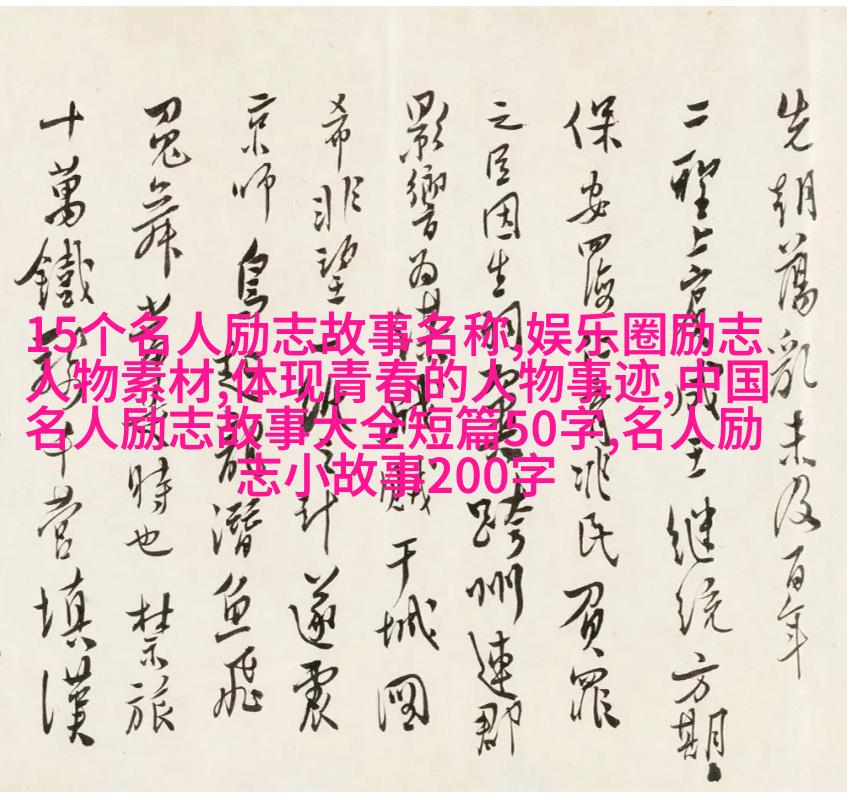 15个名人励志故事名称,娱乐圈励志
人物素材,体现青春的人物事迹,中国
名人励志故事大全短篇50字,名人励
志小故事200字
先朝蕩亂未及百年
二聖上賓成王继统方期
保安四海兆民負罪
之臣因生跨州連郡
影響为謀干城圖
希非望之計遂震
京師鳥潛魚飛
舞時也禁旅
十萬鐵千营填漢